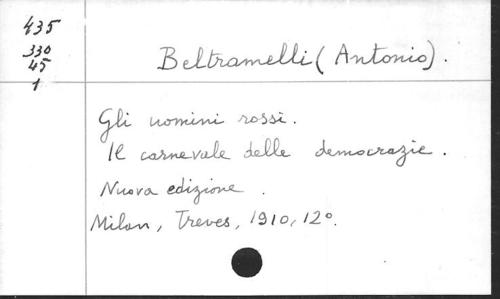 435
330
45
1
Beltramelli (Antonio).
Gli uomini rossi.
Il carnevale delle democrazie.
Nuova edizione.
Milan, Treves, 1910, 12º.